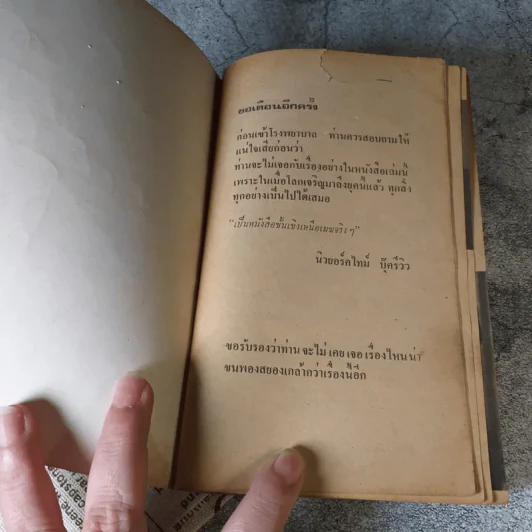 ขอเตือนอีกครั้ง
ก่อนเข้าโรงพยาบาล ท่านควรสอบถามให้
แน่ใจเสียก่อนว่า
ท่านจะไม่เจอกับเรื่องอย่างในหนังสือเล่มนี้
เพราะในเมื่อโลกเจริญมาถึงยุคนี้แล้ว ทุกสิ่ง
ทุกอย่างเป็นไปได้เสมอ
"เป็นหนังสือชั้นเชิงเหนือเมฆจริง ๆ"
นิวยอร์คไทม์ บุ๊ครีวิว
ขอรับรองว่าท่าน จะไม่ เคย เจอ เรื่องไหน น่า
ขนพองสยองเกล้ากว่าเรื่องนี้อีก
capston